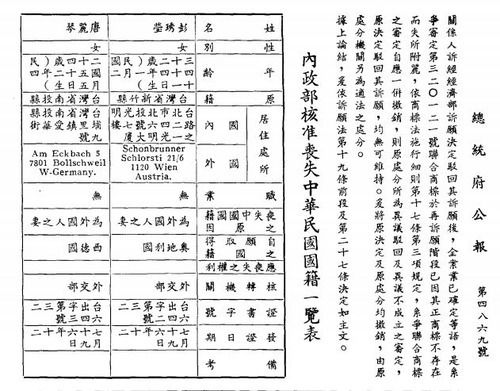 總統府公報
第四八六九號
關係人訴經經濟部訴願決定駁回其訴願後，企業業已確定等語，是系
爭審定第三二○一二一號聯合商標於再訴願階段已因其正商標不存在
而失所附麗，依商標法施行細則第十七條第三項規定，系爭聯合商標
之審定自應一併撤銷，則原處分所為異議駁回及異議不成立之審定，
原決定駁回其訴願，均無可維持。爰將原決定及原處分均撤銷，由原
處分機關另為適法之處分。
據上論結，爰依訴願法第十九條前段及第二十七條決定如主文。
內政部核准喪失中華民國國籍一覽表
姓名 彭琇瑩 唐麗琴
性別 女 女
年齡
三十二歲（民國
四十四年一月二
十一日生）
二十四歲（民
國五十二年四
月五日生）
原籍 台灣省新竹縣 台灣省南投縣
居住處所
國內
台北市北投光明
路二四六號七樓
之一光明大廈
台灣省南投縣
埔里鎮愛華街
九號
國外
Schonbrunner
Schlorsti 21/6
1120 Wien
Austria.
Am Eckbach 5
7801 Bollschweil
W-Germany.
職業 無 無
喪失中國國籍
之原因
為外國人之妻 為外國人之妻
自願取得
之國籍
奧地利國 西德國
應喪失之權利
核轉機關 外交部 外交部
證書字號
台出字第三二
六二四號
台出字第三二
六四三號
發證日期
七十六年十二
月九日
七十六年十二
月九日
備考